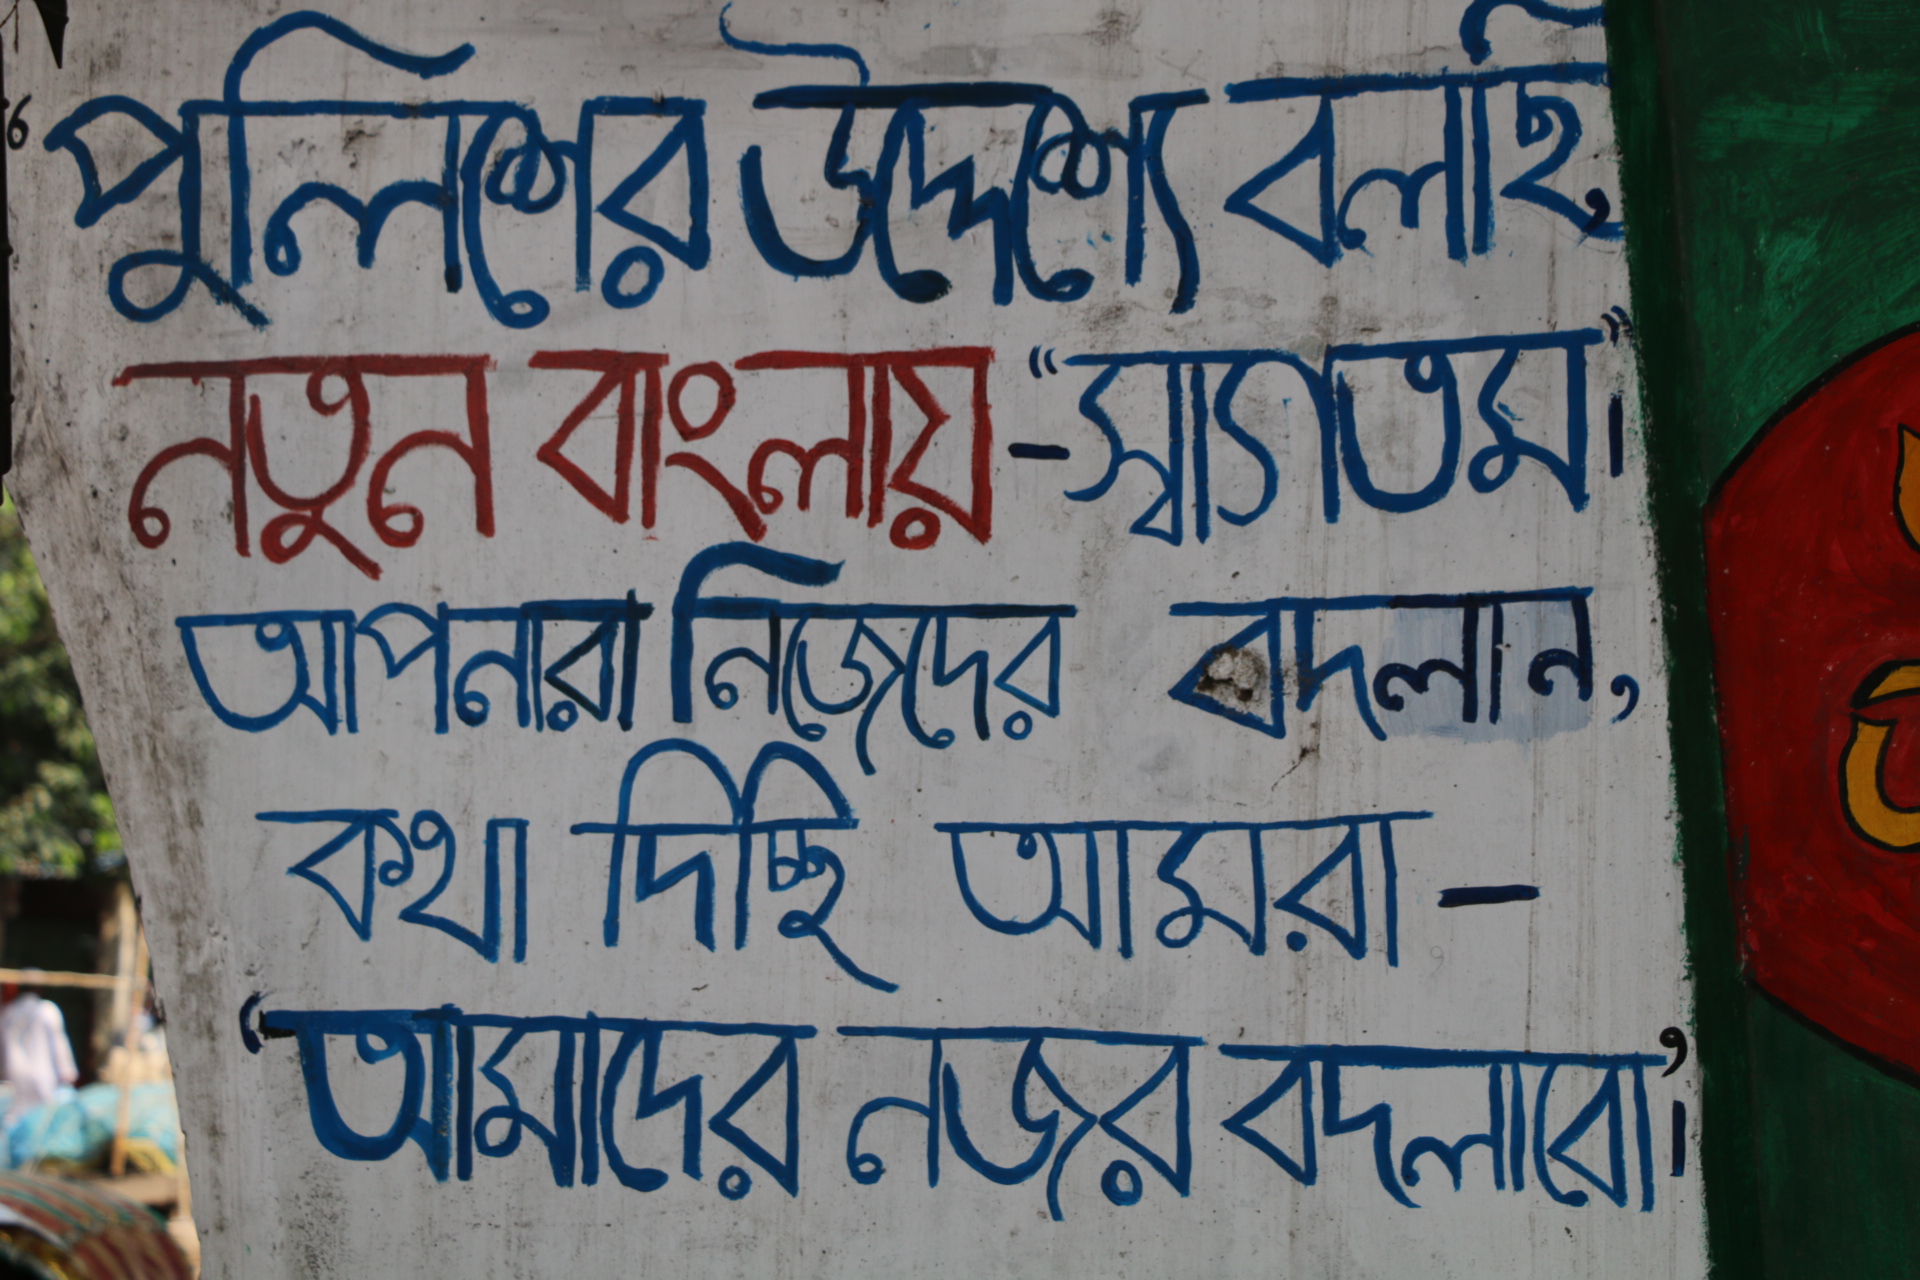 ‘পুলিশের উদ্দেশ্যে বলছি,
নতুন বাংলায় -“স্বাগতম”।
আপনারা নিজেদের বদলান,
কথা দিচ্ছি আমরা -
‘আমাদের নজর বদলাবো’।